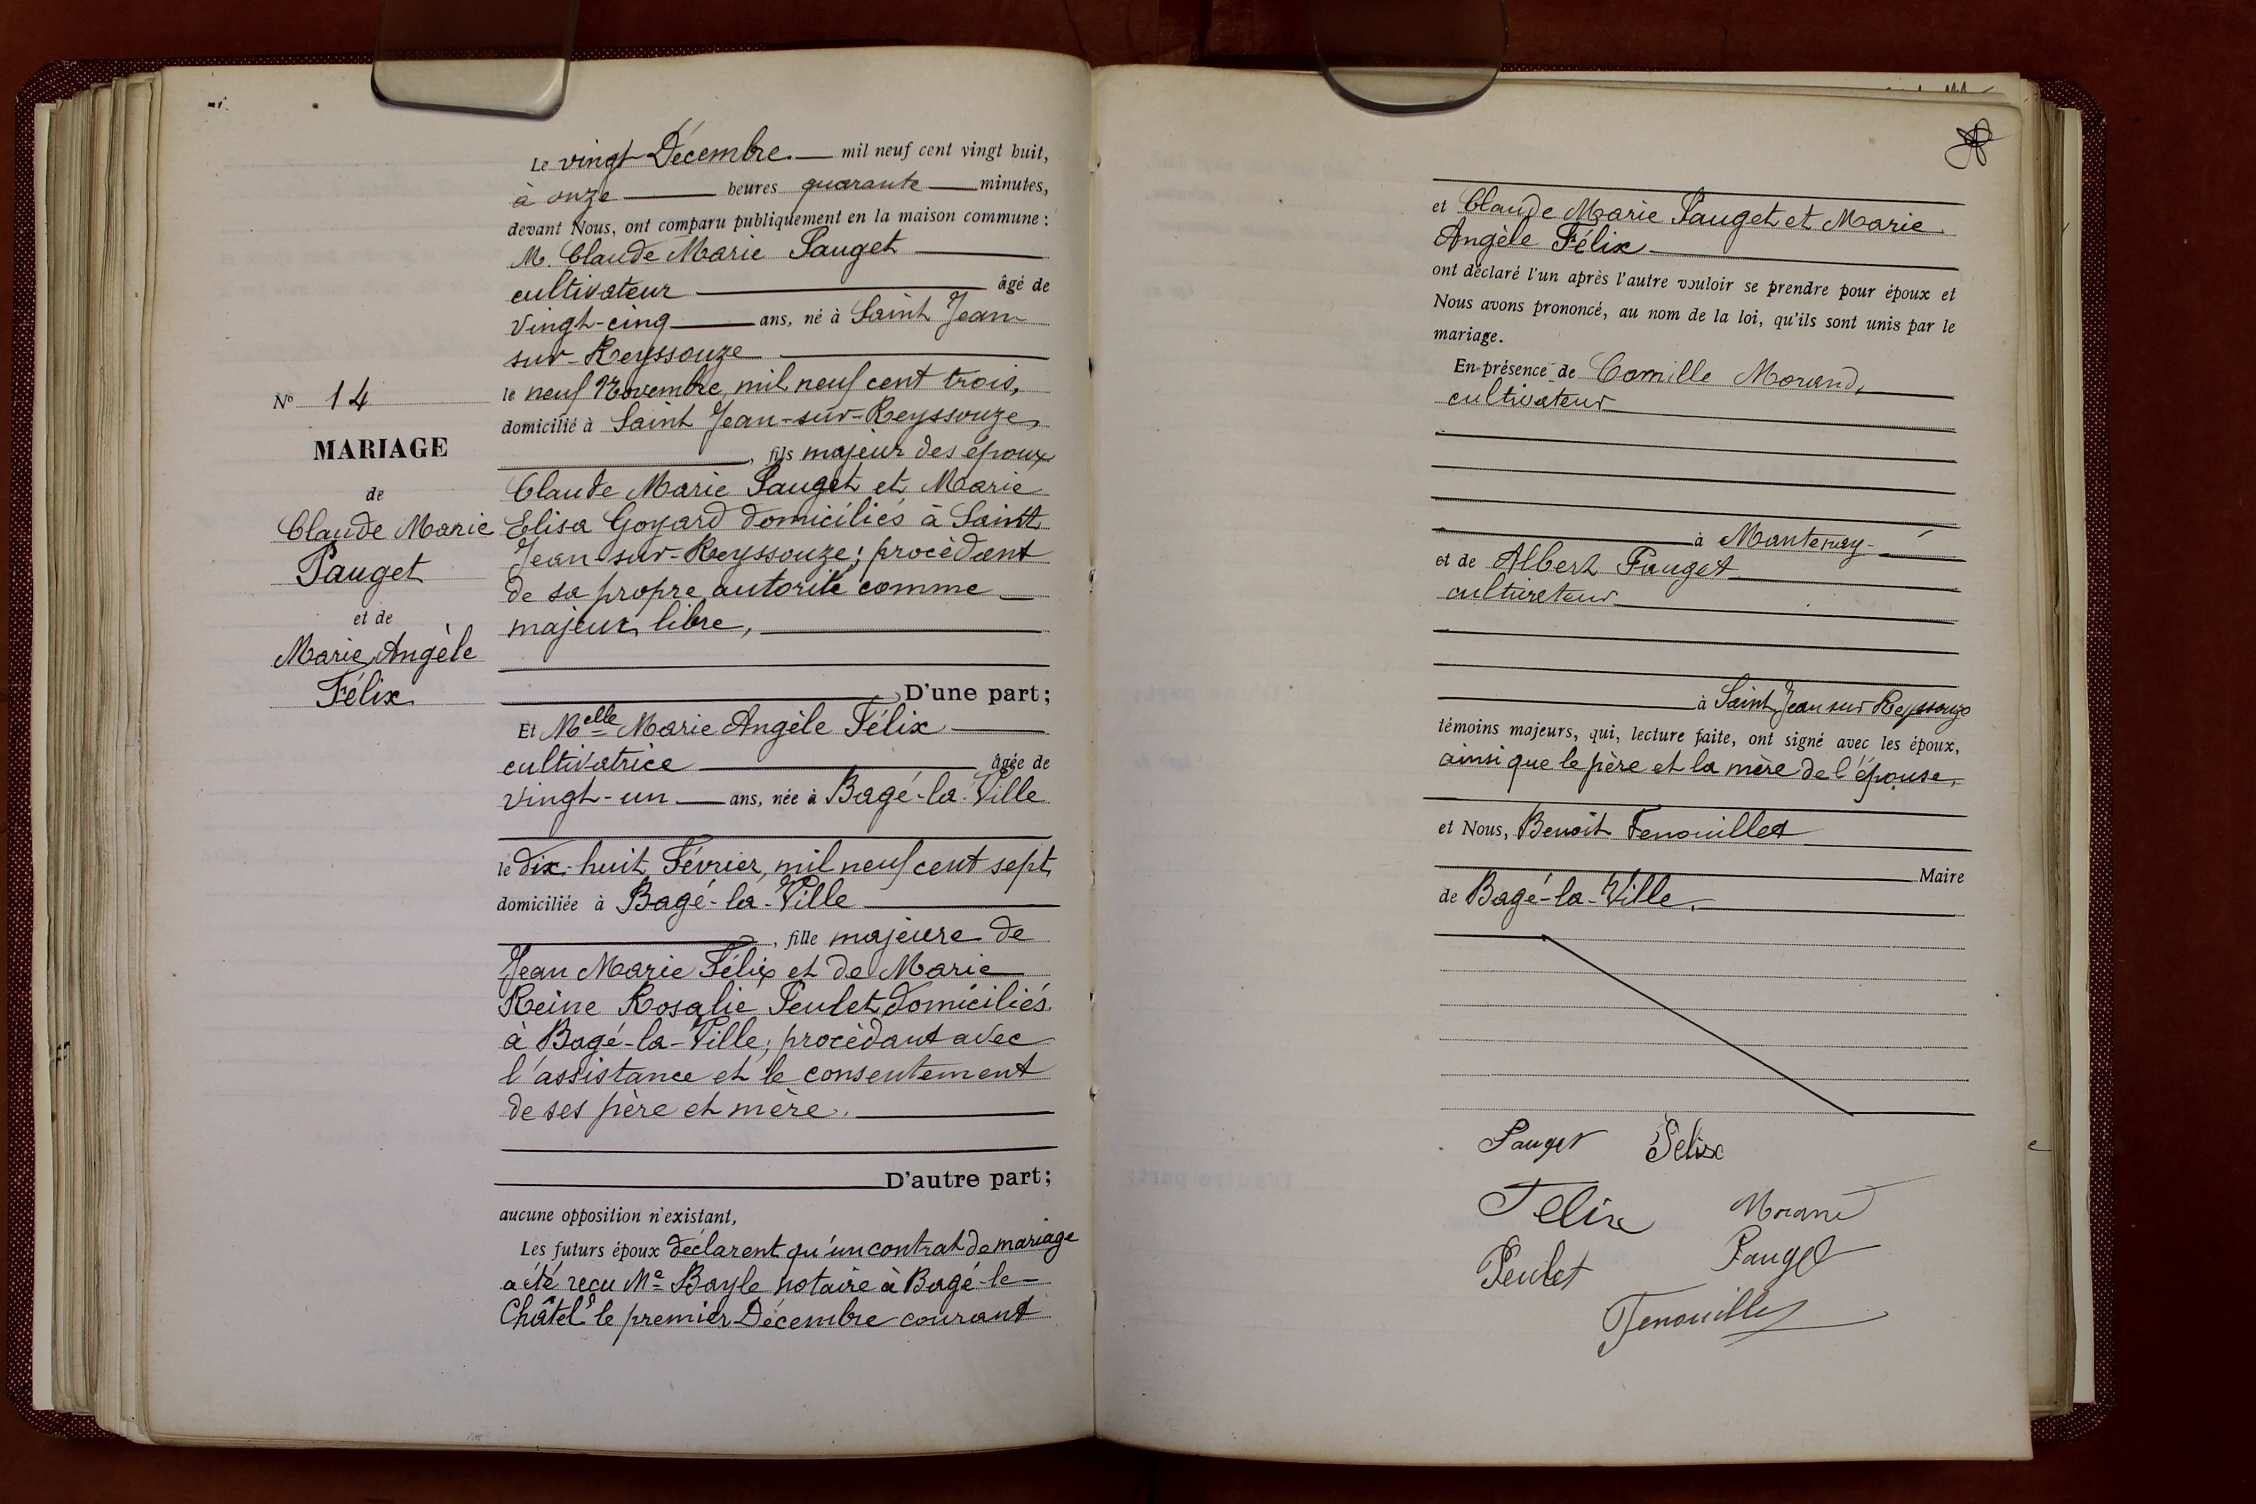 Le vingt Décembre mil neuf cent vingt huit,
à onze heures quarante minutes,
devant Nous, ont comparu publiquement en la maison commune :
M. Claude Marie Pauget
cultivateur âgé de
vingt-cinq ans, né à Saint Jean-
sur-Reyssouze
le neuf Novembre, mil neuf cent trois,
domicilié à Saint Jean-sur-Reyssouze,
, fils majeur des époux
Claude Marie Pauget et Marie
Elisa Goyard domiciliés à Saint
Jean-sur-Reyssouze; procédant
de sa propre autorité comme
majeur libre,
D'une part;
Et Melle Marie Angèle Félix
cultivatrice âgée de
vingt-un ans, née à Bagé-la-Ville
le dix-huit Février, mil neuf cent sept
domiciliée à Bagé-la-Ville
, fille majeure de
Jean Marie Félix et de Marie
Reine Rosalie Peulet domiciliés
à Bagé-la-Ville; procédant avec
l'assistance et le consentement
de ses père et mère.
D'autre part;
aucune opposition n'existant,
Les futurs époux déclarent qu'un contrat de mariage
a été reçu Me Bayle notaire à Bagé-le-
Châtel le premier Décembre courant
No 14
MARIAGE
de
Claude Marie
Pauget
et de
Marie Angèle
Félix
et Claude Marie Pauget et Marie
Angèle Félix
ont déclaré l'un après l'autre vouloir se prendre pour époux et
Nous avons prononcé, au nom de la loi, qu'ils sont unis par le
mariage.
En présence de Camille Morand,
cultivateur
à Mantenay-
et de Albert Pauget
cultivateur
à Saint Jean sur Reyssouze
témoins majeurs, qui, lecture faite, ont signé avec les époux,
ainsi que le père et la mère de l'épouse,
et Nous, Benoît Fenouillet
Maire
de Bagé-la-Ville.
Pauget Félix
Felix Morand
Peulet Pauget
Fenouillet